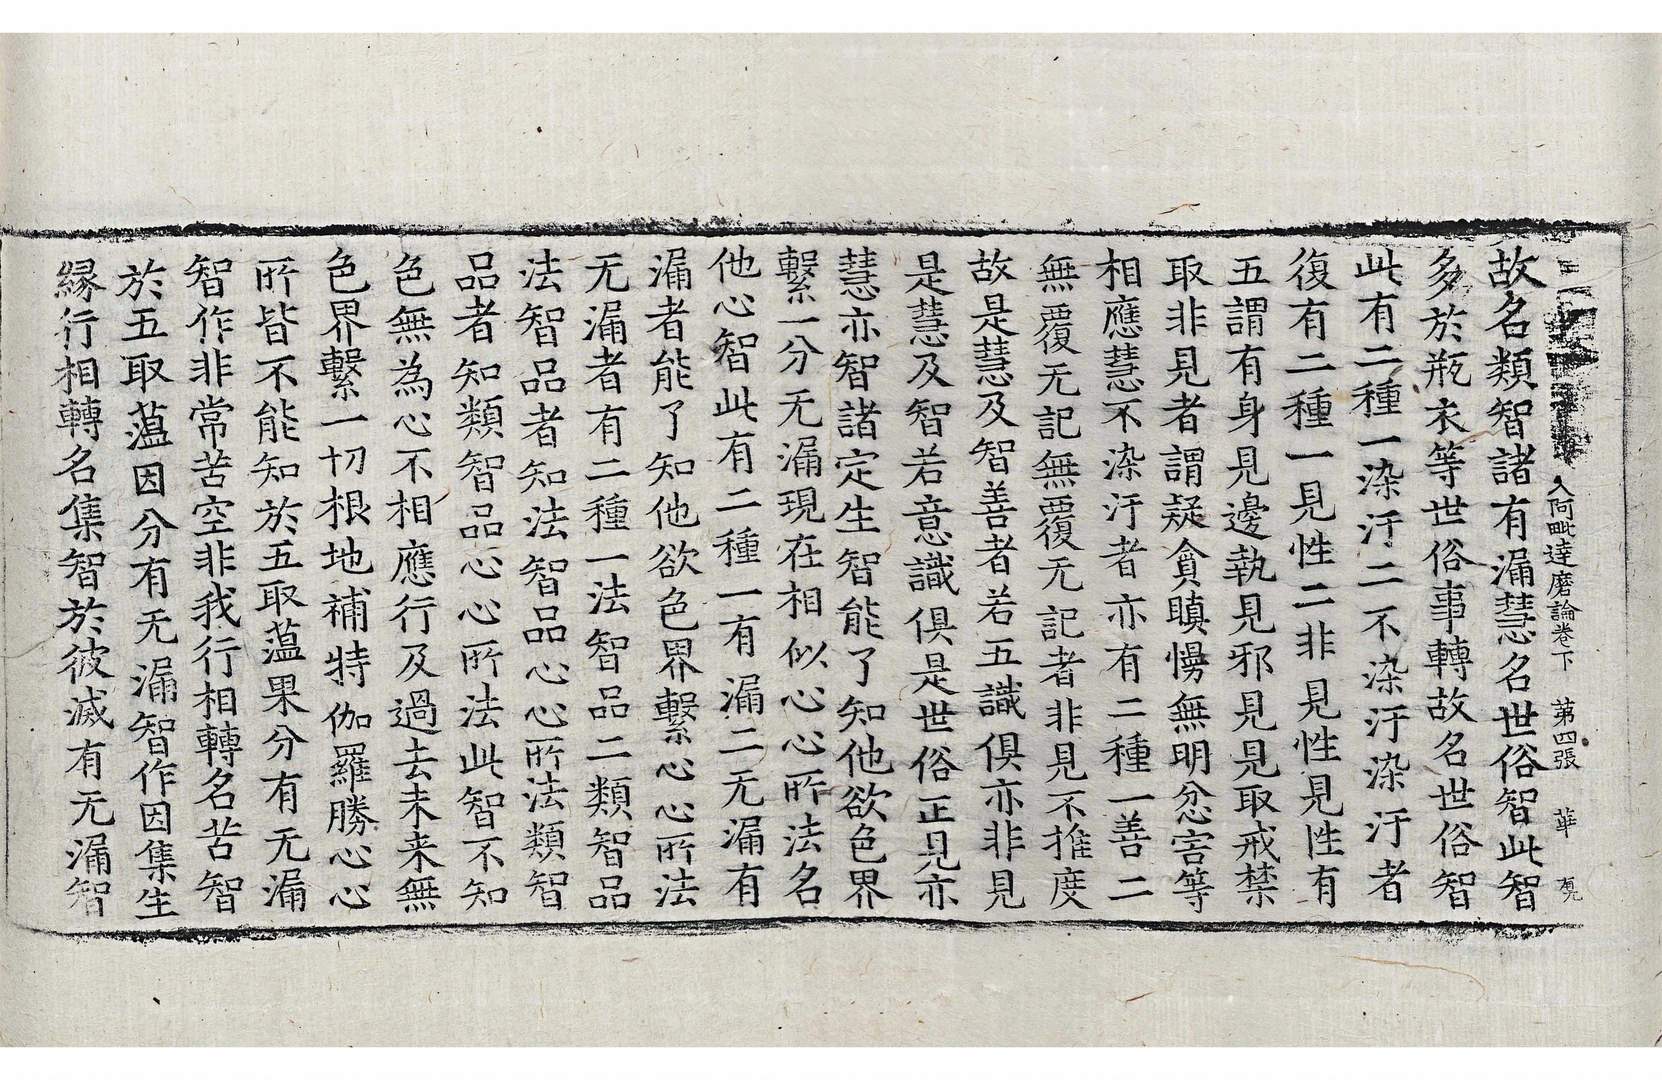 入阿毗達磨論卷下　第四張　華　
故名類智諸有漏慧名世俗智此智
多於瓶衣等世俗事轉故名世俗智
此有二種一染汙二不染汙染汙者
復有二種一見性二非見性見性有
五謂有身見邊執見邪見見取戒禁
取非見者謂疑貪瞋慢無明忿害等
相應慧不染汙者亦有二種一善二
無覆无記無覆无記者非見不推度
故是慧及智善者若五識俱亦非見
是慧及智若意識俱是世俗正見亦
慧亦智諸定生智能了知他欲色界
繫一分无漏現在相似心心所法名
他心智此有二種一有漏二无漏有
漏者能了知他欲色界繫心心所法
无漏者有二種一法智品二類智品
法智品者知法智品心心所法類智
品者知類智品心心所法此智不知
色無為心不相應行及過去未来無
色界繫一切根地補特伽羅勝心心
所皆不能知於五取蕰果分有无漏
智作非常苦空非我行相轉名苦智
於五取蕰因分有无漏智作因集生
縁行相轉名集智於彼滅有无漏智